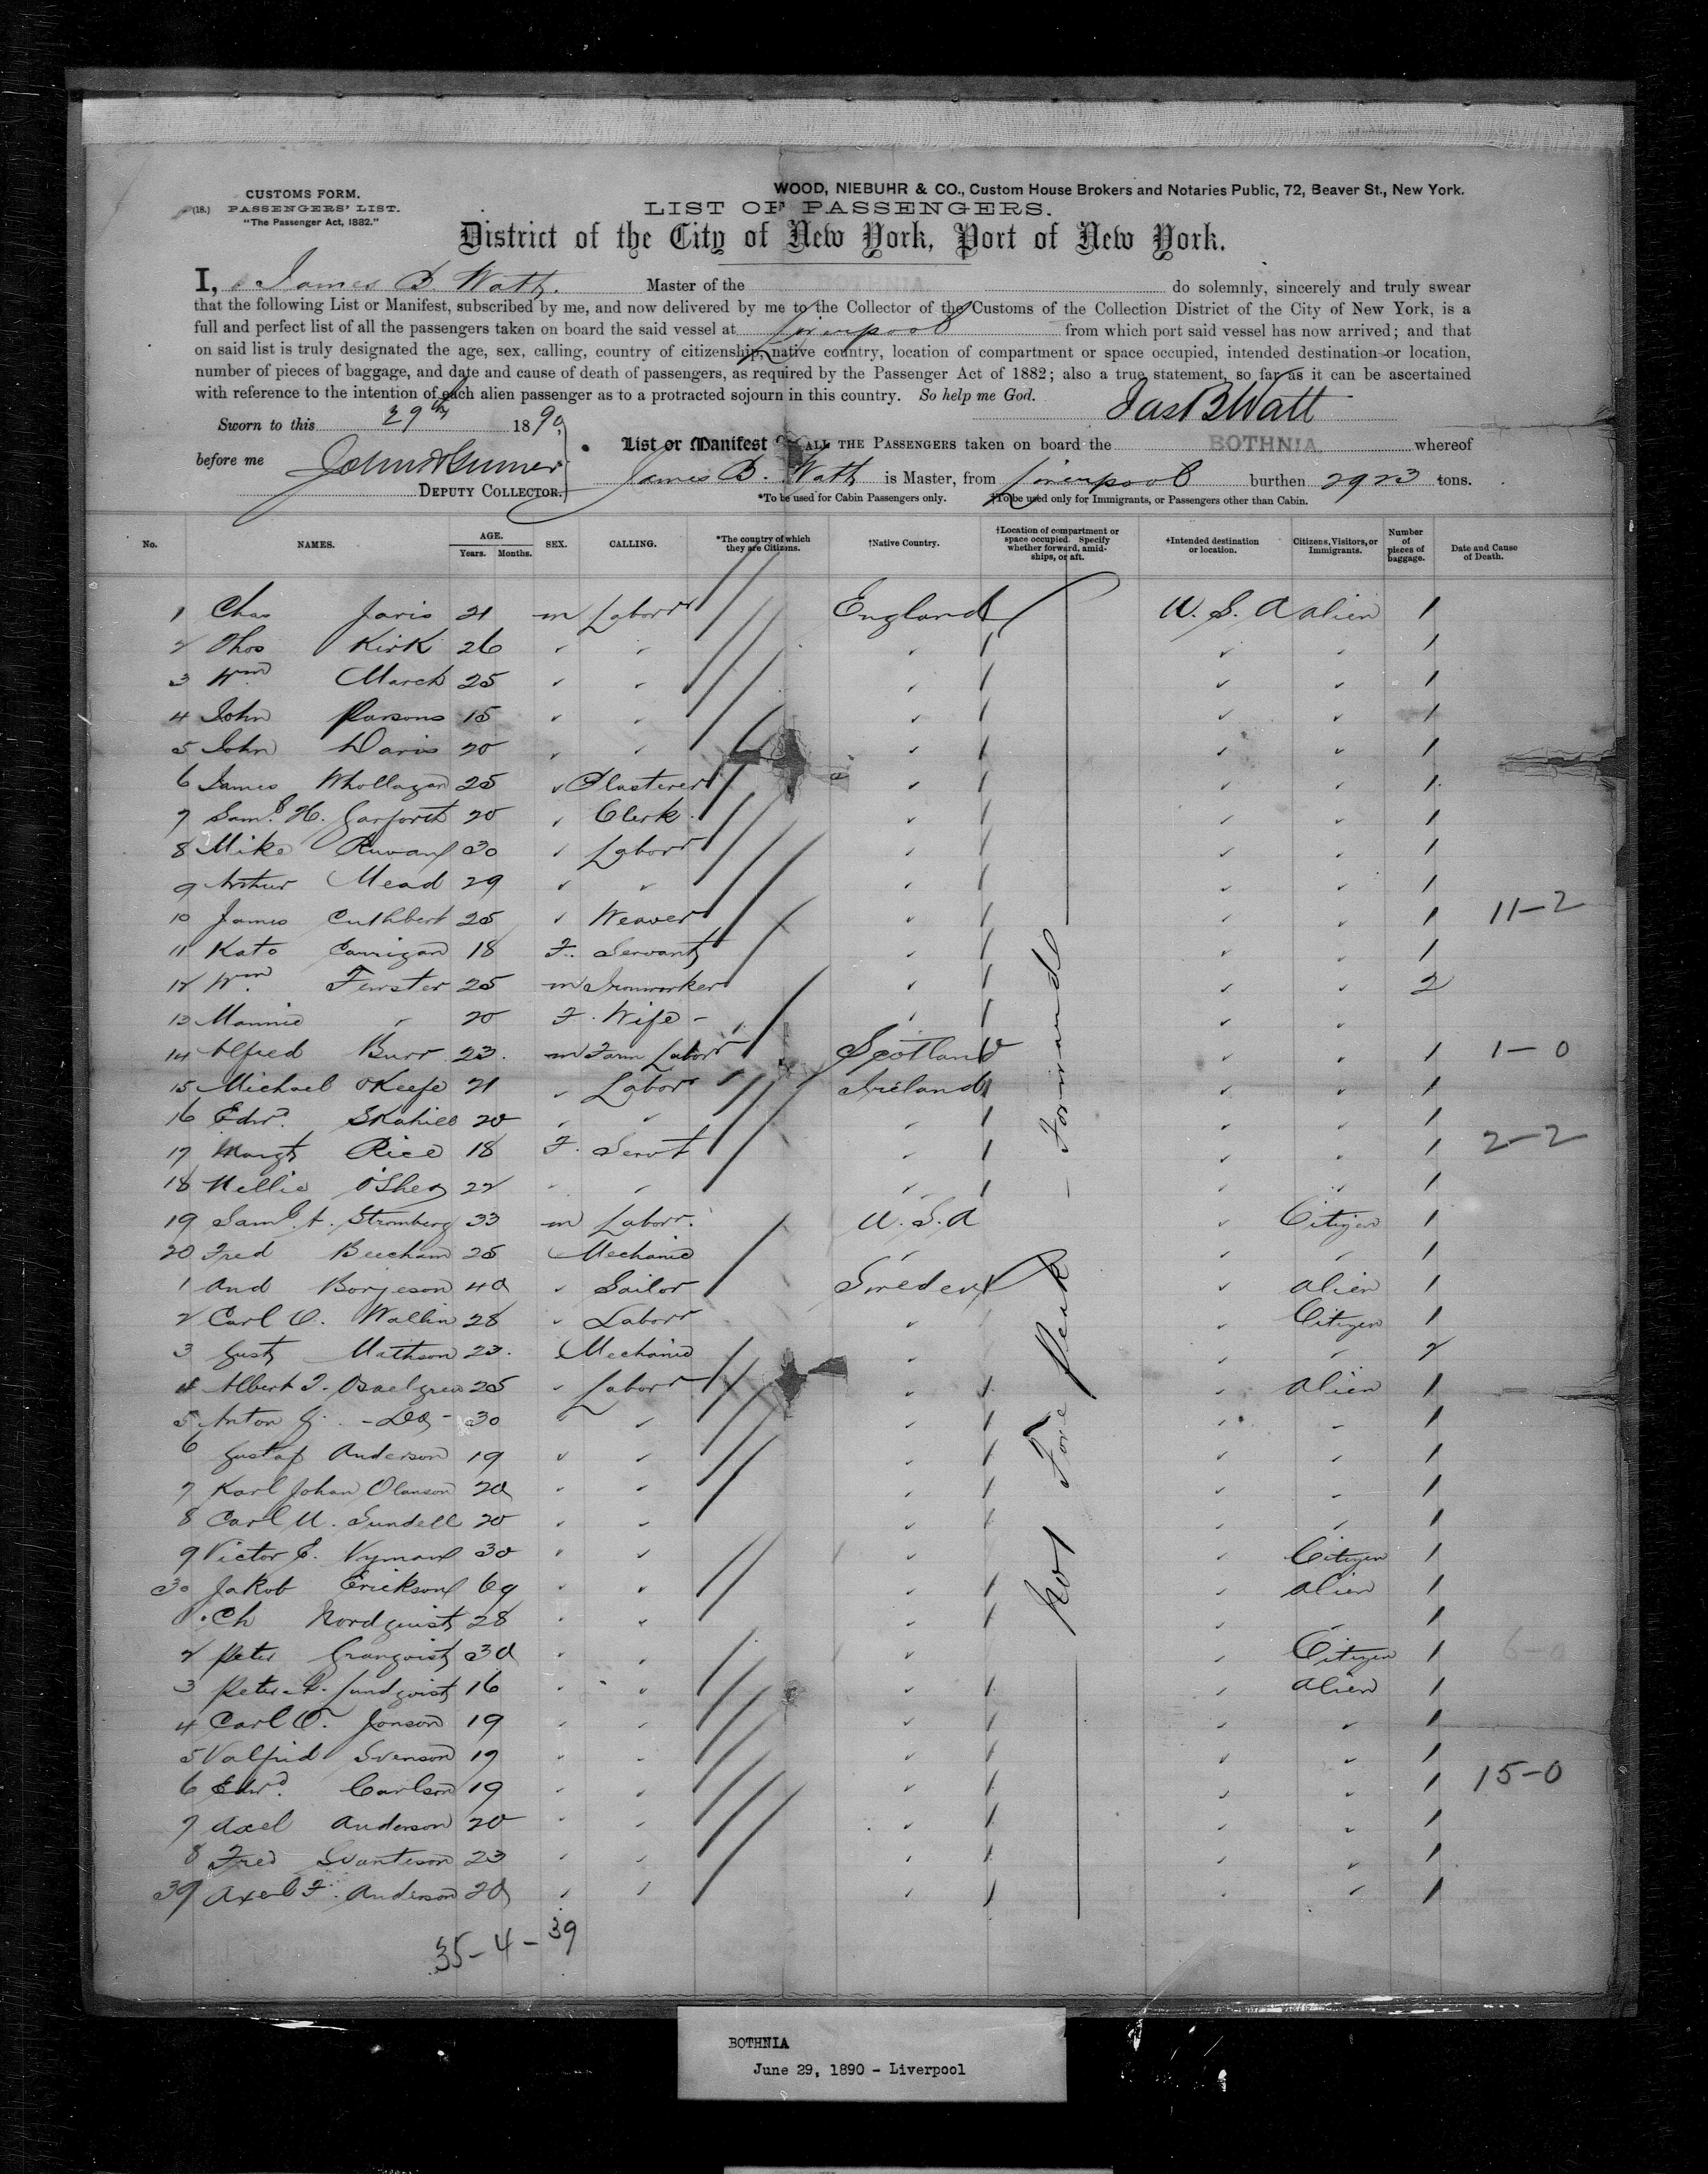 CUSTOMS FORM.
(18.) PASSENGERS' LIST.
"The Passenger Act, 1882."
WOOD, NIEBUHR & CO., Custom House Brokers and Notaries Public, 72, Beaver St., New York.
LIST OF PASSENGERS.
District of the City of New York, Port of New York.
I, James B. Watt, Master of the BOTHNIA do solemnly, sincerely and truly swear
that the following List or Manifest, subscribed by me, and now delivered by me to the Collector of the Customs of the Collection District of the City of New York, is a
full and perfect list of all the passengers taken on board the said vessel at Liverpool from which port said vessel has now arrived; and that
on said list is truly designated the age, sex, calling, country of citizenship, native country, location of compartment or space occupied, intended destination or location,
number of pieces of baggage, and date and cause of death of passengers, as required by the Passenger Act of 1882; also a true statement, so far as it can be ascertained
with reference to the intention of each alien passenger as to a protracted sojourn in this country. So help me God. Jas B Watt
Sworn to this 29th 1890
before me
DEPUTY COLLECTOR.
List or Manifest OF ALL THE PASSENGERS taken on board the BOTHNIA whereof
James B. Watt is Master, from Liverpool burthen 2923 tons.
*To be used for Cabin Passengers only. †To be used only for Immigrants, or Passengers other than Cabin.
No. NAMES. AGE. Years. Months. SEX. CALLING. *The country of which they are Citizens. †Native Country. †Location of compartment or space occupied. Specify whether forward, amidships, or aft. †Intended destination or location. Citizens, Visitors, or Immigrants. Number of pieces of baggage. Date and Cause of Death.
1 Chas Jaris 21 m Laborr England U.S.A alien 1
2 Thos Kirk 26 1
3 Wm March 25 1
4 John Parsons 15 1
5 John Davis 20 1
6 James Whollagan 25 Plasterer 1
7 Saml H. Garforth 20 Clerk 1
8 Mike 30 Laborr 1
9 Arthur Mead 29 1
10 James Cuthbert 25 Weaver 1 11-2
11 Kate Carrigan 18 F. Servant 1
12 Wm 25 m Ironworker 2
13 Minnie 20 F. Wife
14 Alfred Burr 23 m Farm Laborr Scotland 1 1-0
15 Michael O'Keefe 21 Labor Ireland 1
16 Edwd Skahill 20 1
17 Margt Rice 18 F. Servt 1 2-2
18 Nellie O'Shea 22 1
19 Saml A. Stromberg 33 m Laborr. U.S.A Citizen 1
20 Fred Beecham 25 Mechanic 1
1 And Borjeson 40 Sailor Sweden alien 1
2 Carl O. Wallin 28 Laborr Citizen 1
3 Gust Mathson 23 Mechanic 2
4 Albert T. 25 Laborr alien 1
5 Anton G. -Do- 30 1
6 Gustaf Anderson 19 1
7 Karl Johan Olauson 20 1
8 Carl U. Sundell 20 1
9 Victor E. Nyman 30 Citizen 1
30 Jakob Erickson 69 alien 1
1 Ch Nordquist 28 1
2 Peter Granqvist 30 Citizen 1 6-0
3 Peter A. Lundqvist 16 alien 1
4 Carl O. Jonson 19 1
5 Valfrid Svenson 19 1
6 Edwd Carlson 19 1 15-0
7 Axel Anderson 20 1
8 Fred Svanteson 23 1
39 Axel F. Anderson 20 1
No 1 Fore Peak - Forward
35-4-39
BOTHNIA
June 29, 1890 - Liverpool